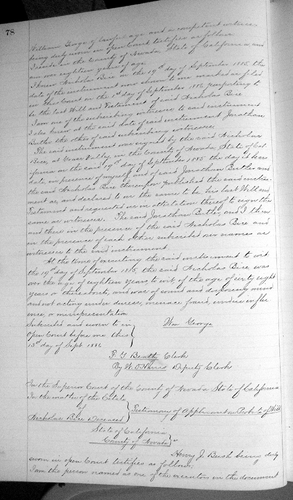 78
William George of lawful age and a competent witness
being duly sworn in open Court testifies as follows
I reside in the County of Nevada State of California and
am over eighteen years of age
I knew Nicholas Bice on the 19th day of September 1885 the
date of the instrument now shown to me marked as filed
in this Court on the 1st day of September 1886, purporting to
be the last Will and Testament of said Nicholas Bice
I am one of the subscribing witnesses to said instrument
I also knew at the said date of said instrument Jonathan
Butler the other of said subscribing witnesses
The said instrument was signed by the said Nicholas
Bice, at Grass Valley in the County of Nevada State of Cal
ifornia on the 19th day of September 1885 the day it bears
date in presence of myself and of said Jonathan Butler and
the said Nicholas Bice thereupon published the said instru
ment as, and declared to us the same to be his last Will and
Testament and requested us in attestation thereof to sign the
same as witnesses. The said Jonathan Butler and I then
and there in the presence of the said Nicholas Bice and
in the presence of each other subscribed our names as
witnesses to the said instrument
At the time of executing the said instrument to wit
the 19th day of September 1885, the said Nicholas Bice was
over the age of eighteen years to wit of the age of
years or thereabouts, and was of sound and disposing mind
and not acting under duress, menace fraud, undue influ
ence, or misrepresentation
Subscribed and sworn to in
Open Court before me this
13th day of Sept 1886
Wm George
Clerk
By Deputy Clerk
In the Superior Court of the County of Nevada State of California
In the matter of the Estate
of
Nicholas Bice Deceased
Testimony of Applicant on Probate of Will
State of California
County of Nevada
Henry J. being duly
sworn in open Court testifies as follows,
I am the person named as one of the executors in the document